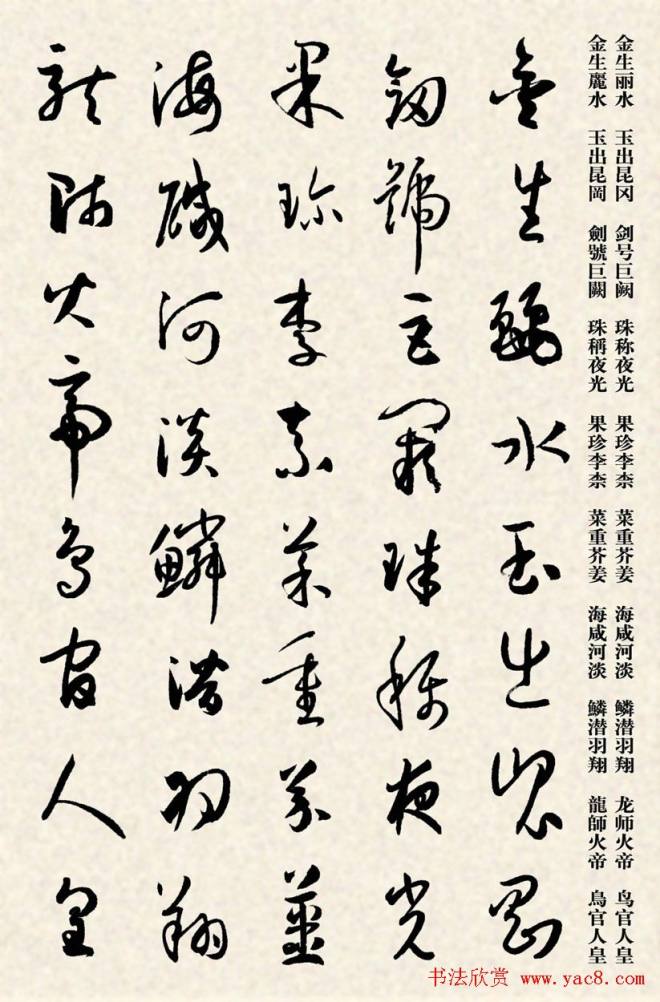 金生丽水　玉出昆冈　剑号巨阙　珠称夜光　果珍李柰　菜重芥姜　海咸河淡　鳞潜羽翔　龙师火帝　鸟官人皇
金生麗水　玉出昆岡　劍號巨闕　珠稱夜光　果珍李柰　菜重芥姜　海咸河淡　鱗潜羽翔　龍師火帝　鳥官人皇
金生麗水玉出崑岡
劍號巨闕珠稱夜光
果珍李柰菜重芥薑
海醎河淡鱗潛羽翔
龍師火帝鳥官人皇
书法欣赏 www.yac8.com